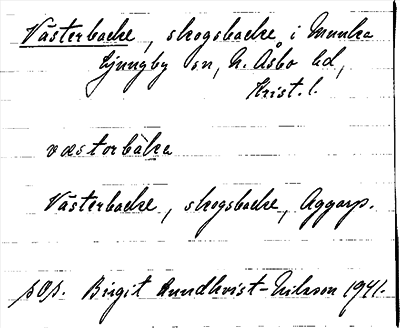 Västerbacke, skogsbacke i Munka
Ljungby sn, N. Åsbo hd,
Krist. l.
væstorbàka
Västerbacke, skogsbacke, Aggarp.
pOp. Birgit Rundkvist-Nilsson 1941.